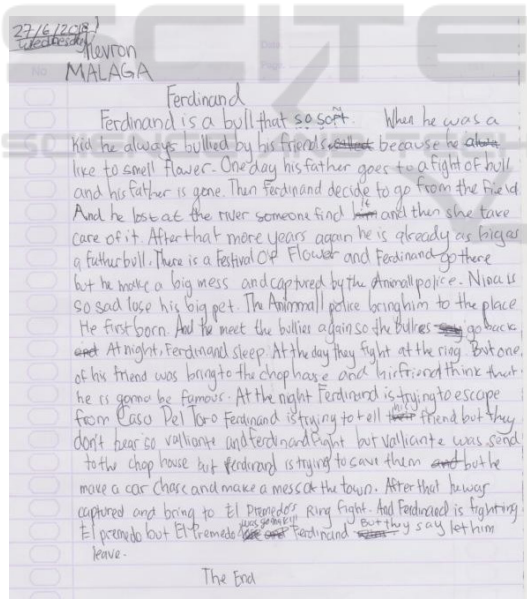 27/6/2018
Wednesday
Nevron
MALAGA
Ferdinand
Ferdinand is a bull that so soft. When he was a
kid he always bullied by his friends because he
like to smell flower. One day his father goes to a fight of bull
and his father is gone. Then Ferdinand decide to go from the field
And he lost at the river someone find it and then she take
care of it. After that more years again he is already as big as
a father bull. There is a Festival Of Flower and Ferdinand go there
but he make a big mess and captured by the Animall police. Nina is
so sad lose his big pet. The Animmall police bring him to the place
He first born. And he meet the bullies again so the Bullies go back
At night, Ferdinand sleep. At the day they fight at the ring. But one
of his friend was bring to the chop house and his friend think that
he is gonna be famous. At the night Ferdinand is trying to escape
from Casa Del Toro Ferdinand is trying to tell his friend but they
don't hear so valliante and ferdinand fight but valliante was send
to the chop house but ferdinand is trying to save them but he
make a car chase and make a mess at the town. After that he was
captured and bring to El Premedo's Ring Fight. And Ferdinand is fighting
El premedo but El Premedo was gonna kill Ferdinand But they say let him
leave.
The End